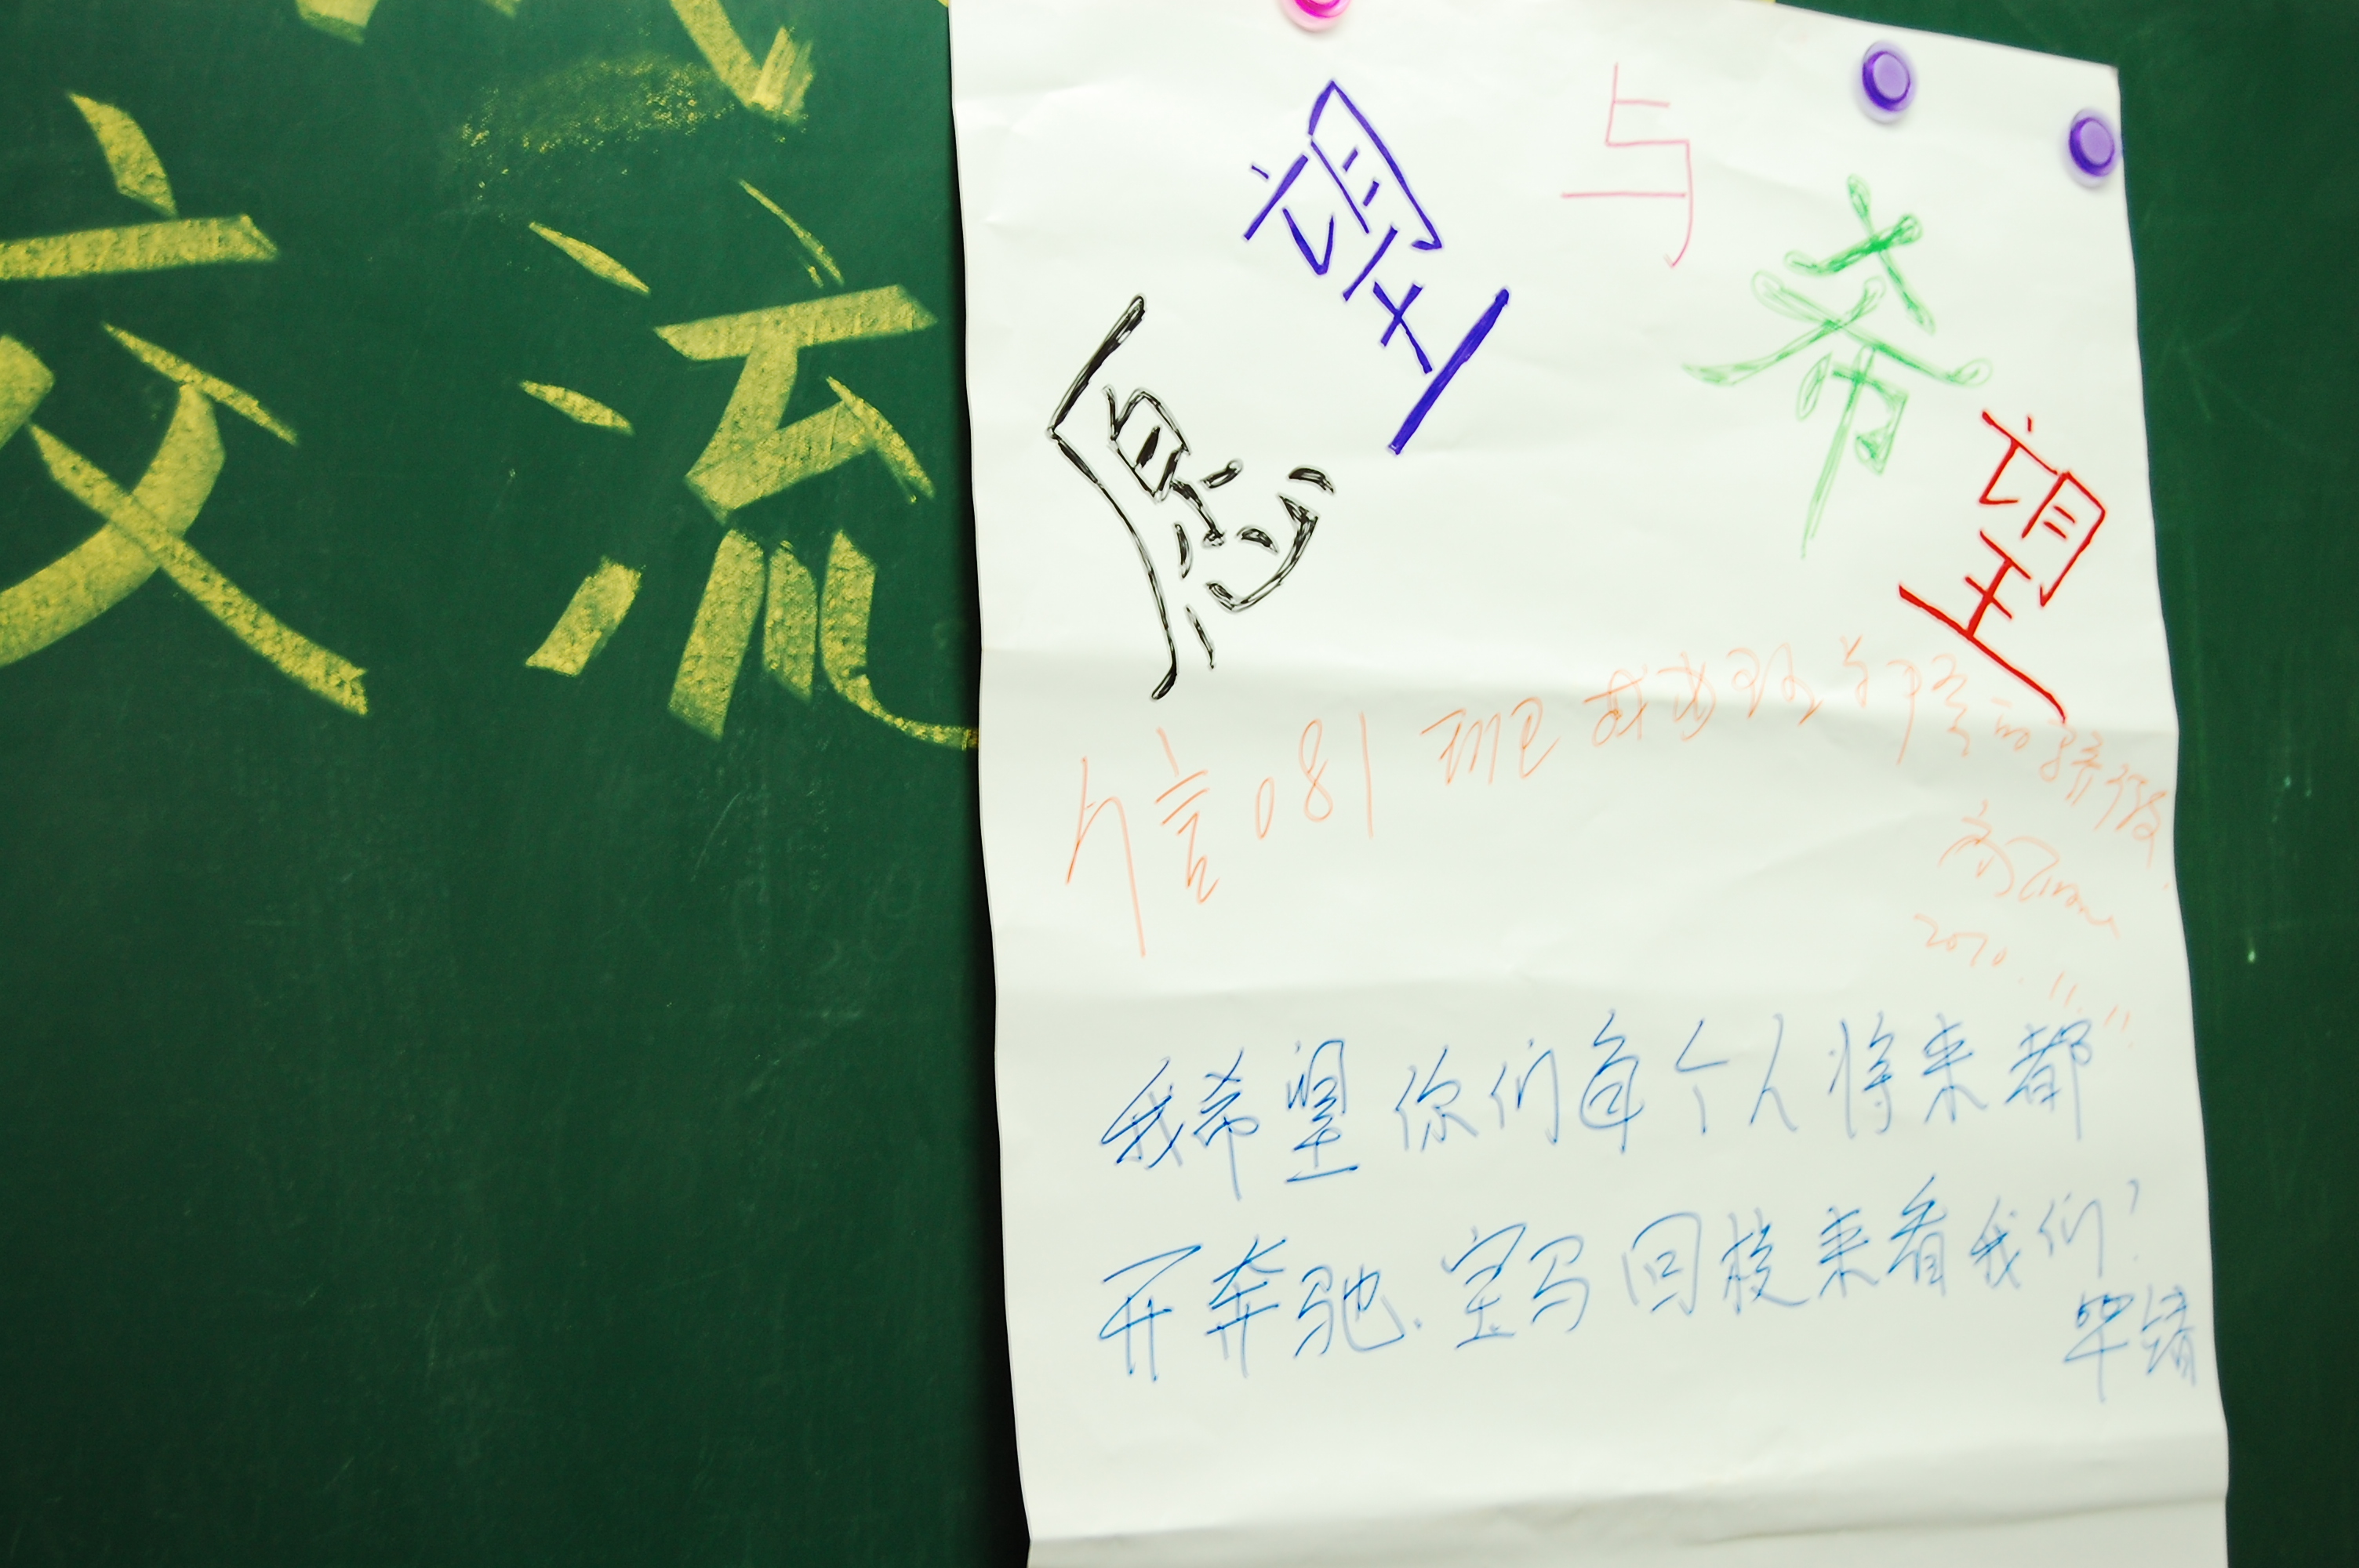 交流
愿望与希望
信081班 我 的骄傲.
2010.11.11
我希望你们每个人将来都
开奔驰.宝马回校来看我们!